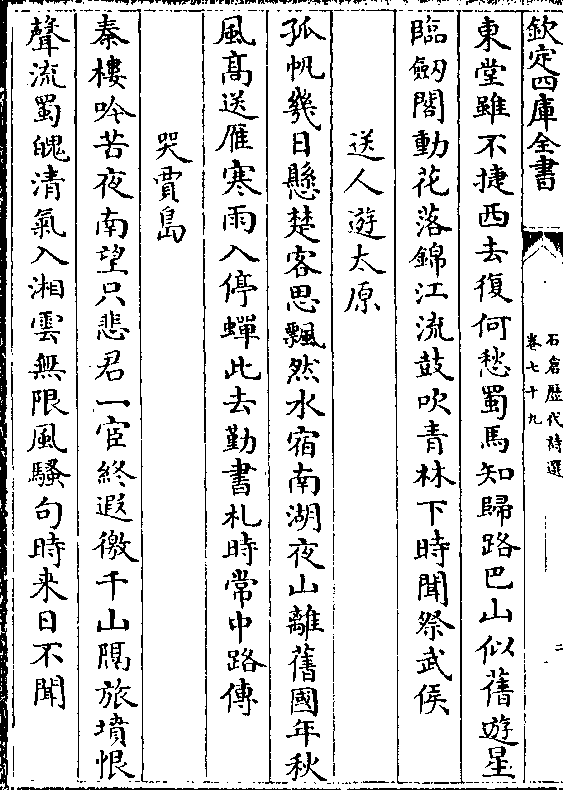 欽定四庫全書
石倉歷代詩選
卷七十九
二
東堂雖不捷西去復何愁蜀馬知歸路巴山似舊遊星
臨劒閣動花落錦江流鼓吹青林下時聞祭武侯
送人遊太原
孤帆幾日懸楚客思飄然水宿南湖夜山離舊國年秋
風髙送雁寒雨入停蟬此去勤書札時常中路傳
哭賈島
秦樓吟苦夜南望只悲君一宦終遐徼千山隔旅墳恨
聲流蜀魄清氣入湘雲無限風騷句時来日不聞